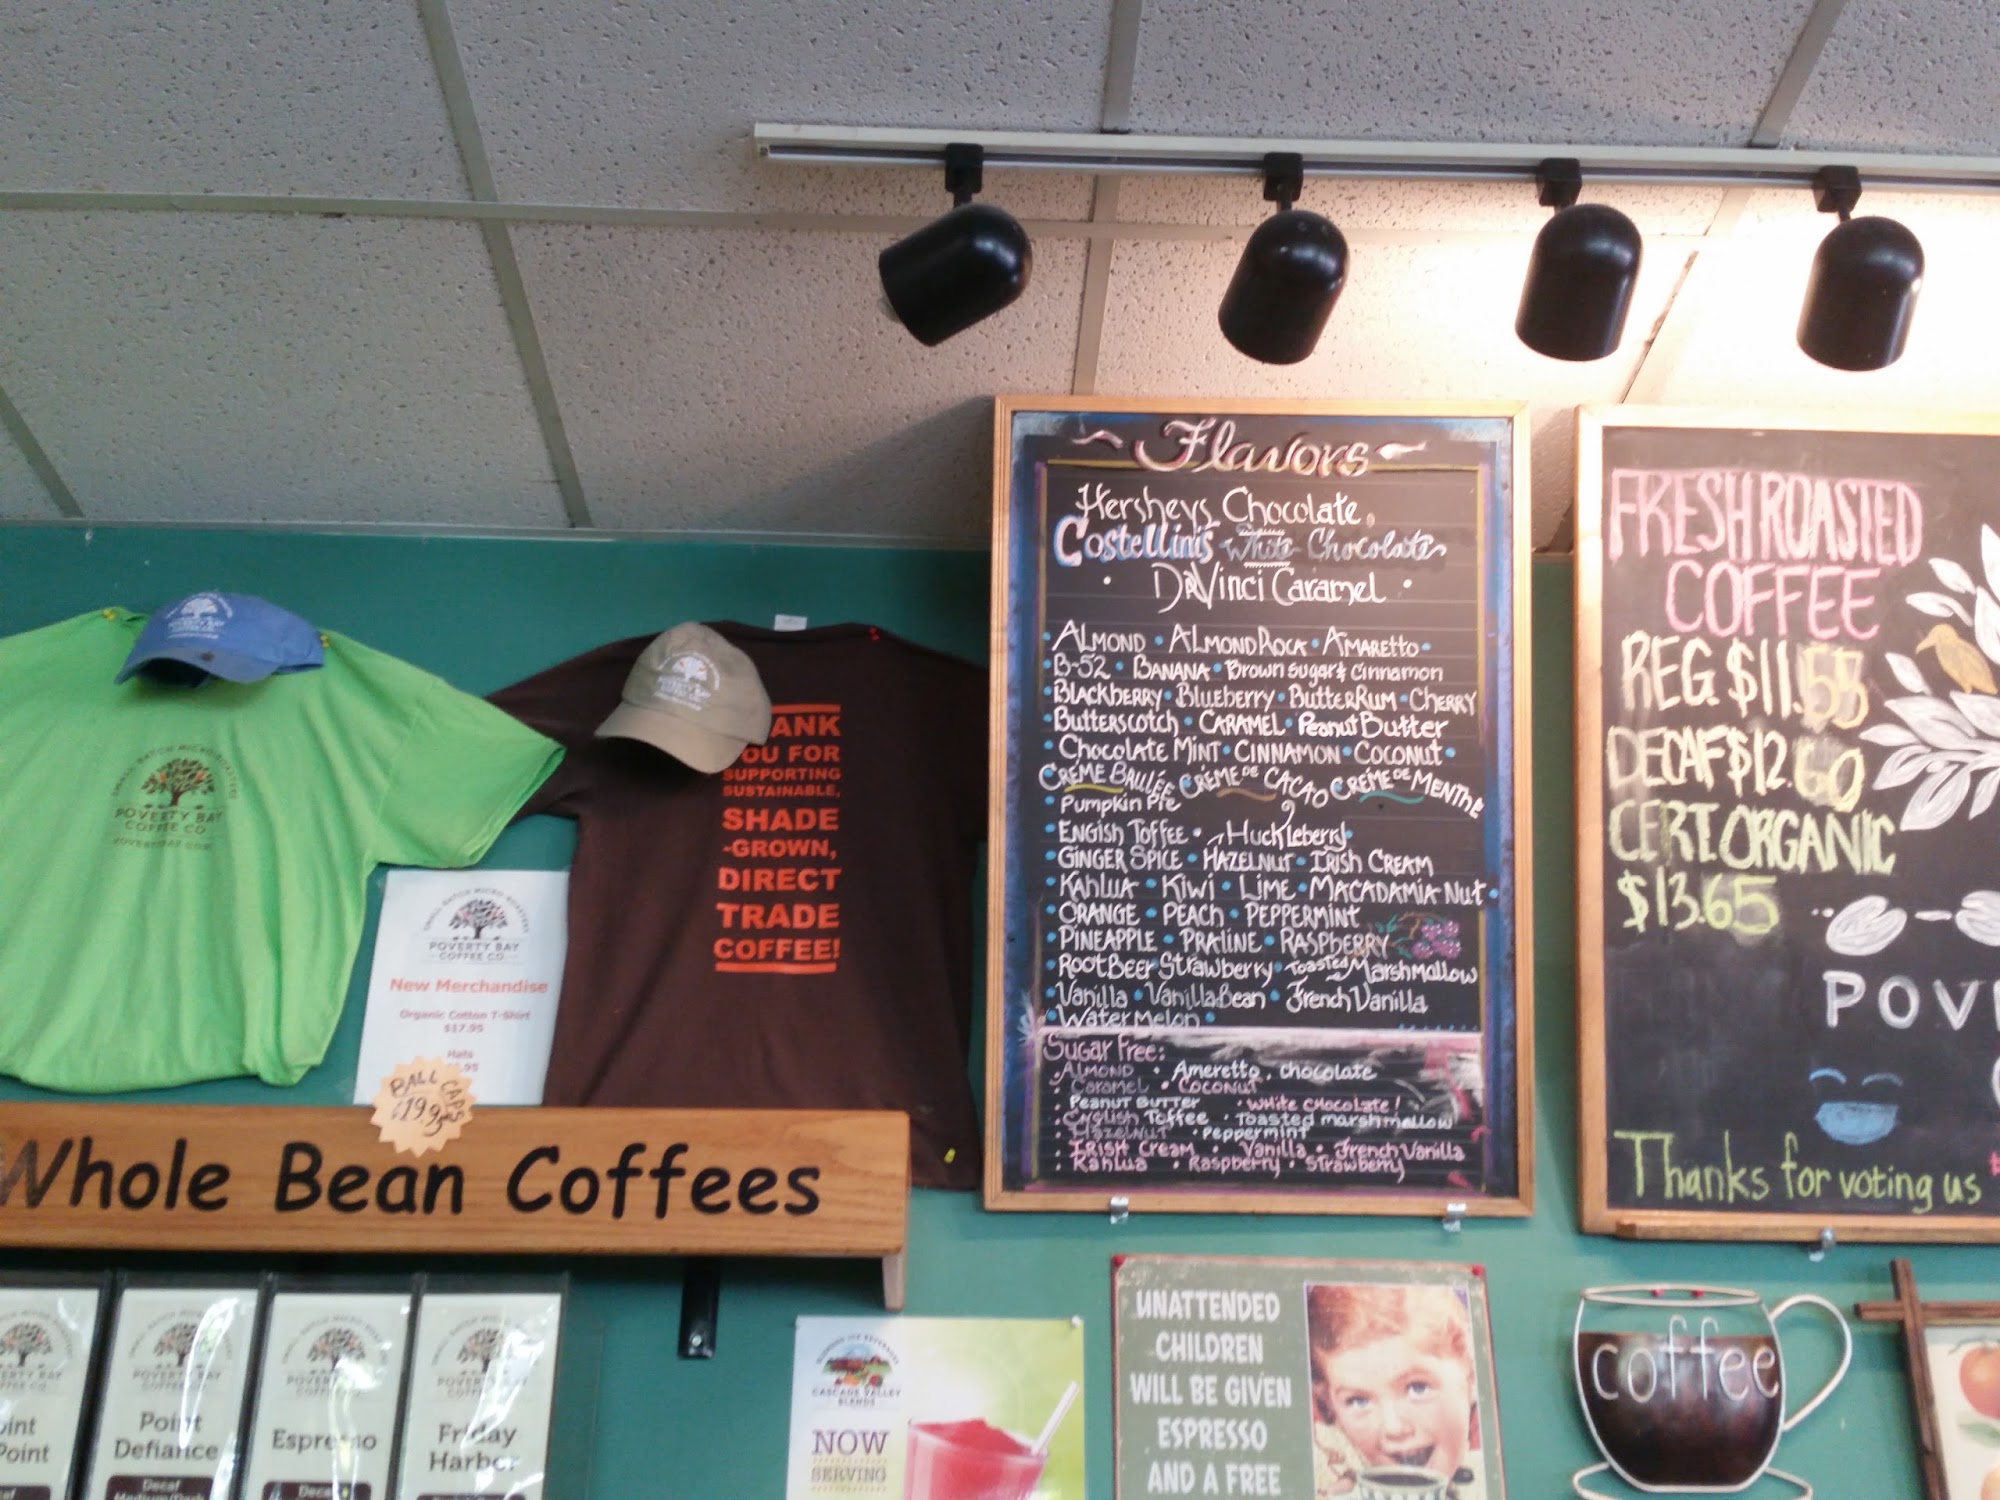 ~ Flavors ~
Hersheys Chocolate
Costellini's White Chocolate
• DaVinci Caramel •
• ALMOND • ALMOND ROCA • AMARETTO •
• B-52 • BANANA • Brown sugar & cinnamon
• BLACKBERRY • Blueberry • BUTTER RUM • CHERRY
• Butterscotch • CARAMEL • Peanut Butter
• CHOCOLATE MINT • CINNAMON • COCONUT •
CRÈME BRULÉE CRÈME DE CACAO CRÉME DE MENTHE
• Pumpkin Pie
• ENGISH TOFFEE • Huckleberry •
• GINGER SPICE • HAZELNUT • IRISH CREAM
• KAHLUA • KIWI • LIME • MACADAMIA NUT •
• ORANGE • PEACH • PEPPERMINT
• PINEAPPLE • PRALINE • RASPBERRY
• ROOT BEER Strawberry • TOASTED MARSHMALLOW
• Vanilla • Vanilla Bean • French Vanilla
• Water Melon •
Sugar Free:
. ALMOND • Ameretto . chocolate
. Caramel • COCONUT
. PEANUT BUTTER • WHITE CHOCOLATE!
. English Toffee • Toasted marshmallow
. Hazelnut • Peppermint
. IRISH CREAM • Vanilla • French Vanilla
. Kahlua • Raspberry • Strawberry
FRESH ROASTED
COFFEE
REG. $11.55
DECAF $12.60
CERT. ORGANIC
$13.65
POV
Thanks for voting us
SMALL-BATCH MICRO-ROASTERS
POVERTY BAY
COFFEE CO.
POVERTY BAY
COFFEE CO.
POVERTY BAY
ANK
OU FOR
SUPPORTING
SUSTAINABLE,
SHADE
-GROWN,
DIRECT
TRADE
COFFEE!
SMALL-BATCH MICRO-ROASTERS
POVERTY BAY
COFFEE CO.
New Merchandise
Organic Cotton T-Shirt
$17.95
Hats
.95
BALL CAPS
$19.95
Whole Bean Coffees
POVERTY BAY
COFFEE CO.
oint
Point
POVERTY BAY
COFFEE CO.
Point
Defiance
Decaf
Medium/Dark
POVERTY BAY
COFFEE CO.
Espresso
Decaf
POVERTY BAY
COFFEE CO.
Friday
Harbor
CASCADE VALLEY
BLENDS
NOW
SERVING
UNATTENDED
CHILDREN
WILL BE GIVEN
ESPRESSO
AND A FREE
coffee